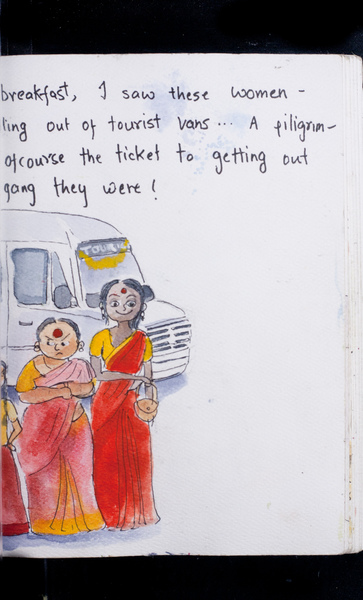 breakfast, I saw these women -
ling out of tourist vans... A piligrim-
ofcourse the ticket to getting out
gang they were!
TOURI